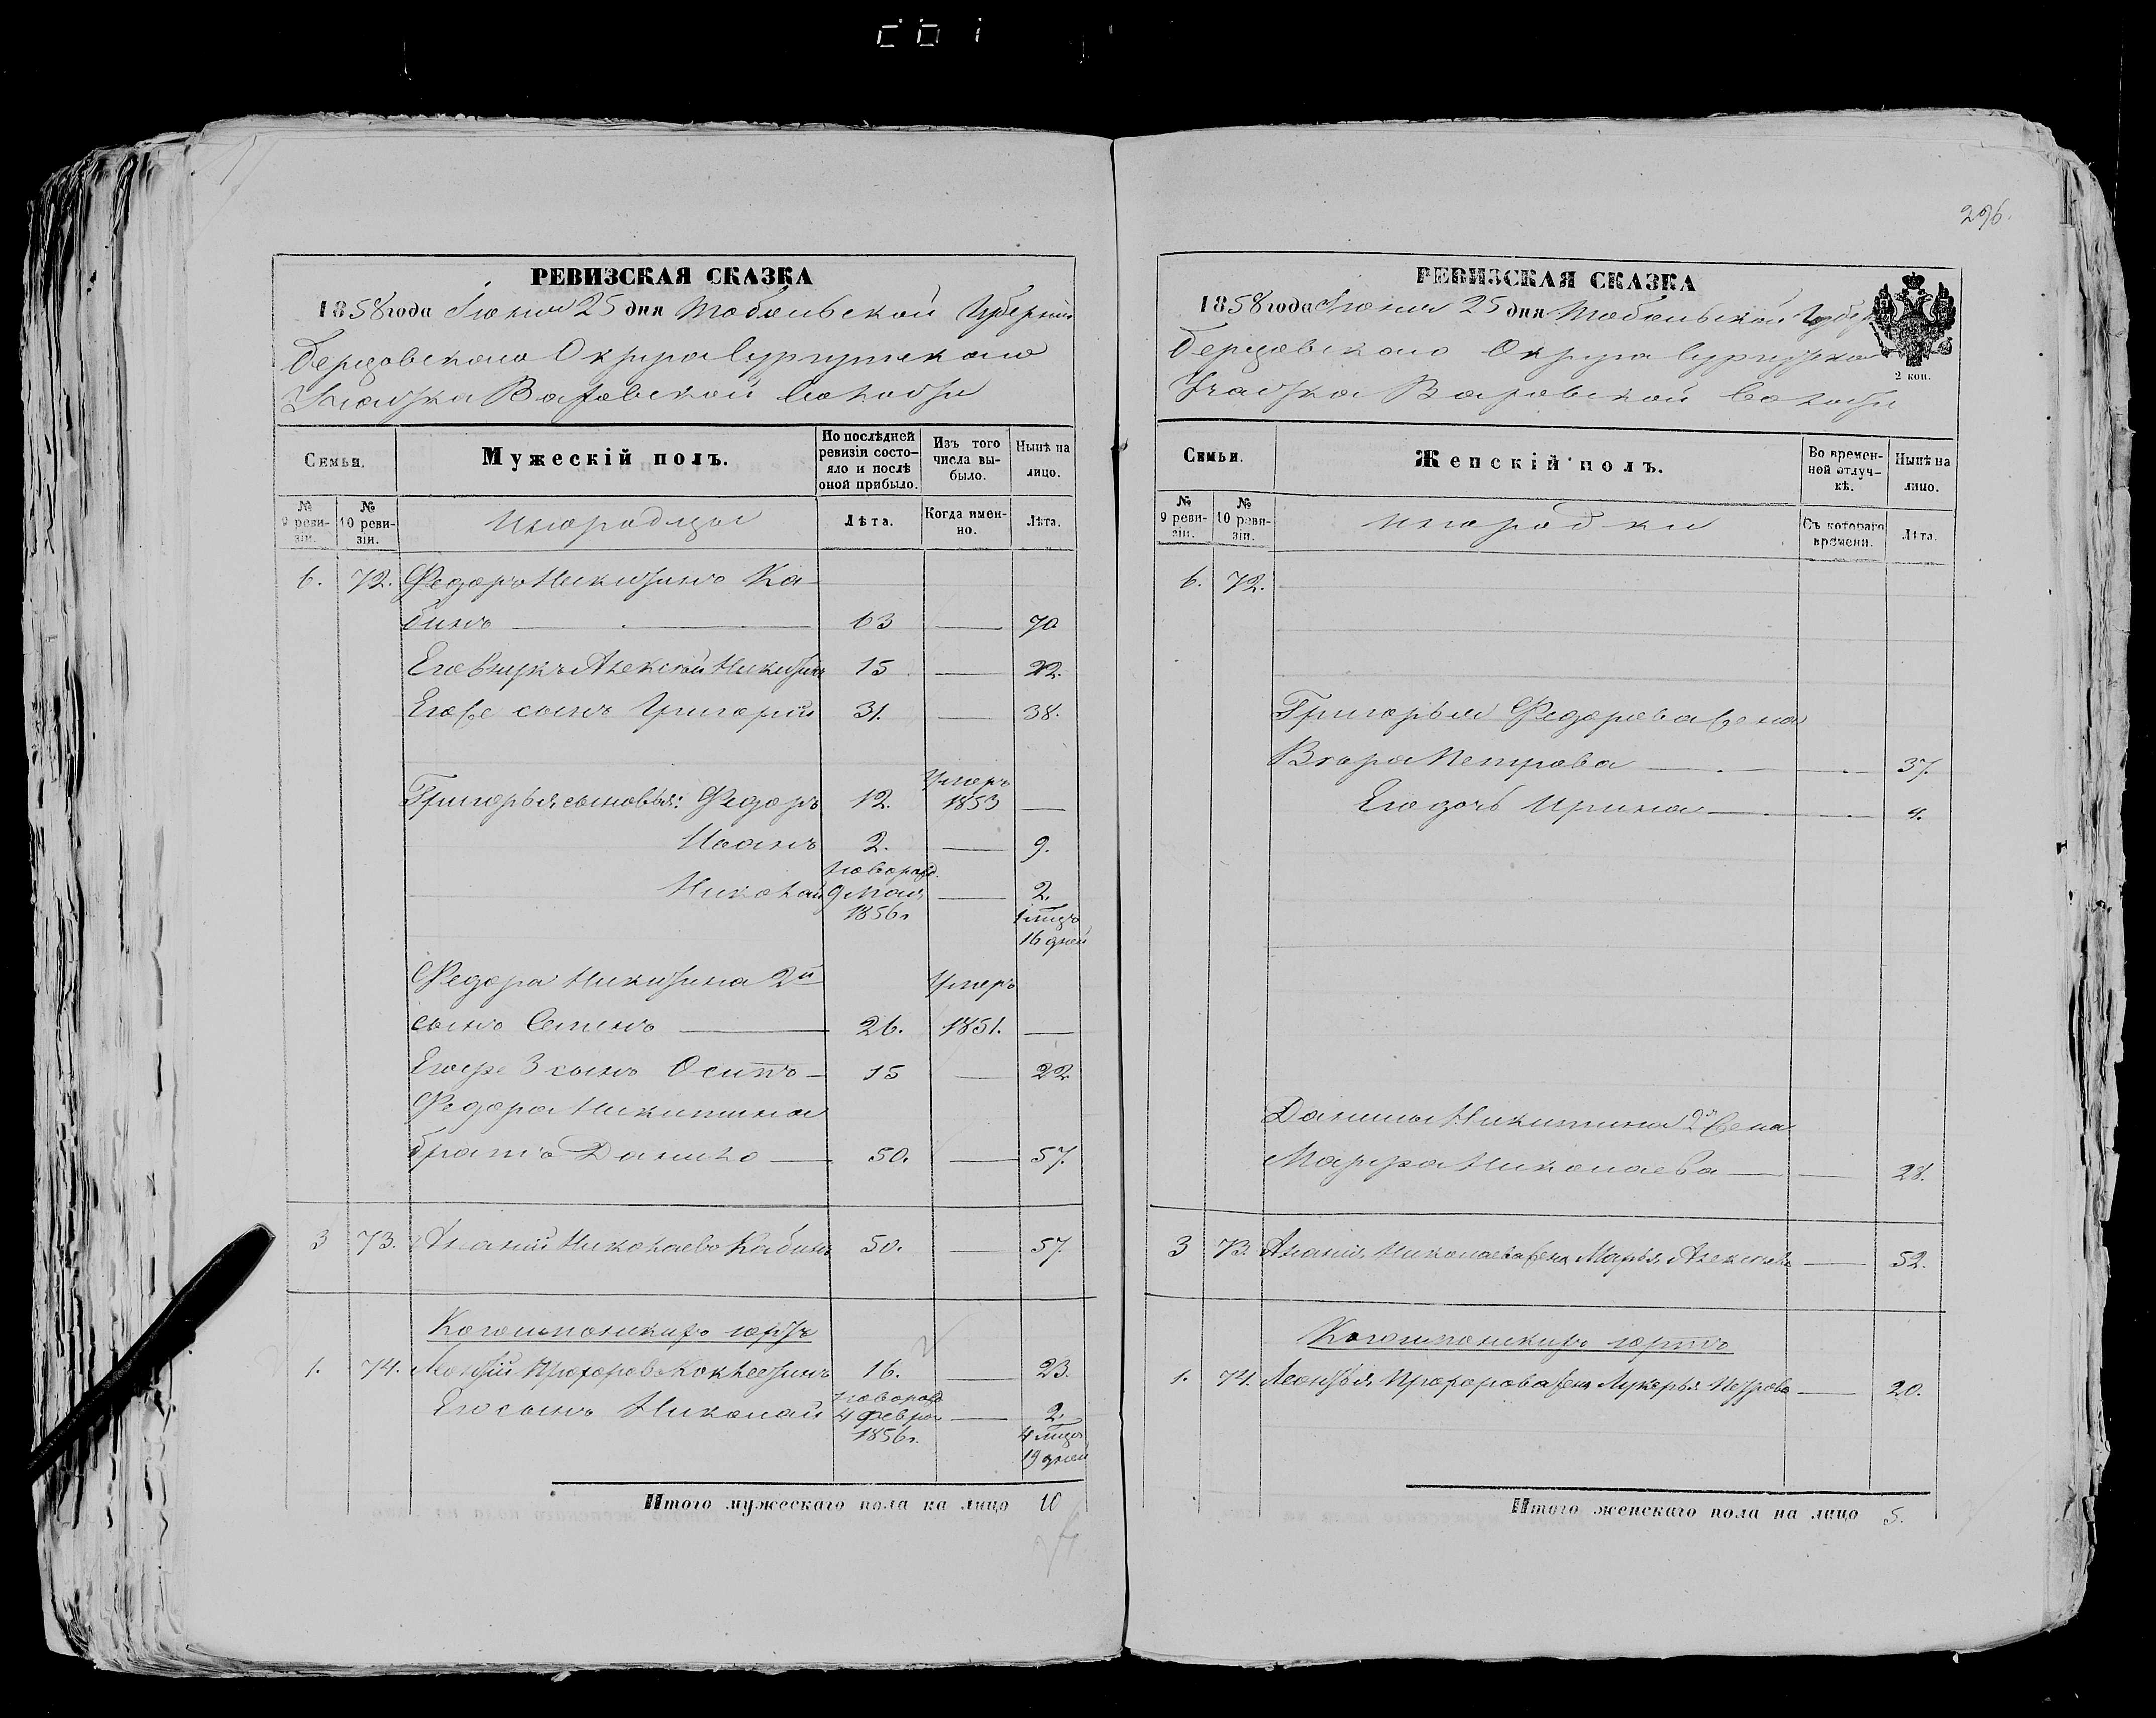 296.
РЕВИЗСКАЯ СКАЗКА
1858 года Июня 25 дня Тобольской Губерніи
Березовскаго Округа Сургутскаго
Участка Ваховской волости
Семьи.
Мужескій полъ.
По послѣдней ревизіи состо-
яло и послѣ оной прибыло.
Изъ того числа вы-
было.
Нынѣ на лицо.
№ 9 реви-
зіи.
№ 10 реви-
зіи.
Инородцы
Лѣта.
Когда имен-
но.
Лѣта.
6. 72. Федоръ Никитинъ Ка-
бинъ 63 — 70
Его внукъ Алексѣй Никитинъ 15 — 22.
Его же сынъ Григорій 31. — 38.
Григорья сыновья: Федоръ 12. Умеръ 1853 —
Иванъ 2. — 9.
Николай новорожд. 9 Мая 1856 г — 2. 1 мцъ 16 дней
Федора Никитина 2й
сынъ Семенъ — 26. Умеръ 1851. —
Его же 3 сынъ Осипъ — 15 — 22
Федора Никитина
братъ Данило — 50. — 57.
3 73. Ананій Николаевъ Кабинъ 50. — 57
юртъ
1. 74. Леонтій Прохоровъ 16. — 23.
Его сынъ Николай новорожд 4 февра 1856 г. — 2. 4 мцъ 19 дней
Итого мужескаго пола на лицо 10
РЕВИЗСКАЯ СКАЗКА
1858 года Июня 25 дня Тобольской Губер
Березовскаго Округа
Участка Ваховской волости
2 коп.
Семьи.
Женскій полъ.
Во времен-
ной отлуч-
кѣ.
Нынѣ на лицо.
№ 9 реви-
зіи.
№ 10 реви-
зіи.
инородки
Съ котораго времени.
Лѣта.
6. 72.
Григорья Федорова жена
Вѣра Петрова — — 37.
Его дочь Ирина — —
Данилы Никитина 2я жена
Марфа Николаева — — 28.
3 73. Ананія Николаева жена Марья Алексѣева — 52.
юртъ
1. 74. Леонтья Прохорова жена Лукерья Петрова — 20.
Итого женскаго пола на лицо 5.